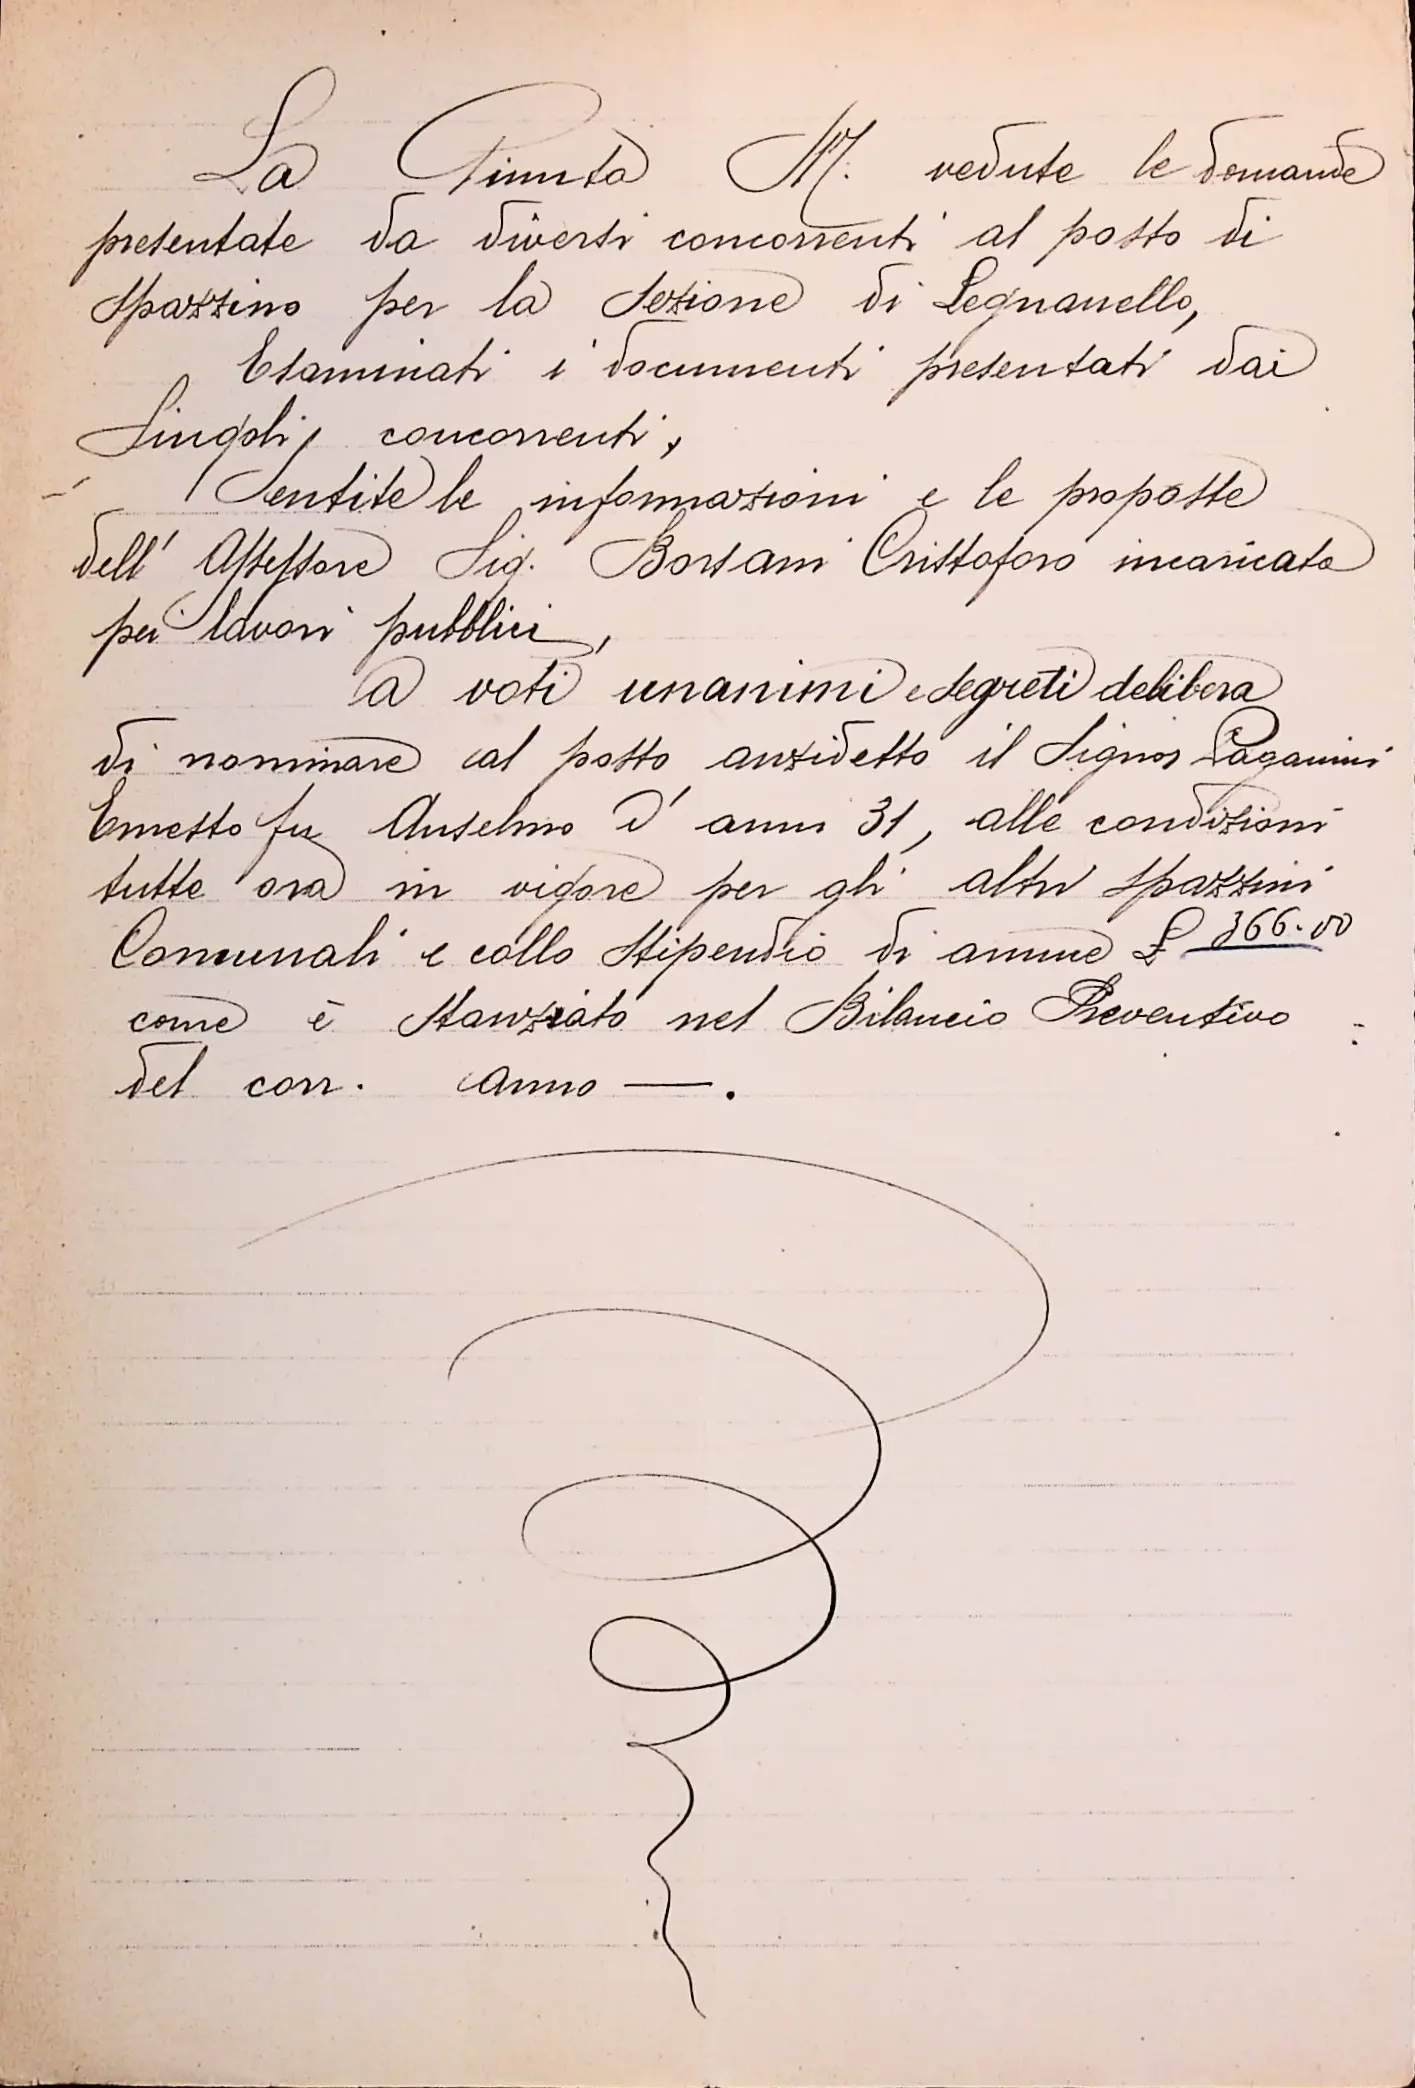 La Giunta M. vedute le domande
presentate da diversi concorrenti al posto di
spazzino per la sezione di Legnanello,
Esaminati i documenti presentati dai
singoli concorrenti,
Sentite le informazioni e le proposte
dell' Assessore Sig. Borsani Cristoforo incaricato
pei lavori pubblici,
a voti unanimi e segreti delibera
di nominare al posto anzidetto il Signor Paganini
Ernesto fu Anselmo d' anni 31, alle condizioni
tutte ora in vigore per gli altri spazzini
Comunali e collo stipendio di annue £ 366.00
come è stanziato nel Bilancio Preventivo
del corr. anno —.